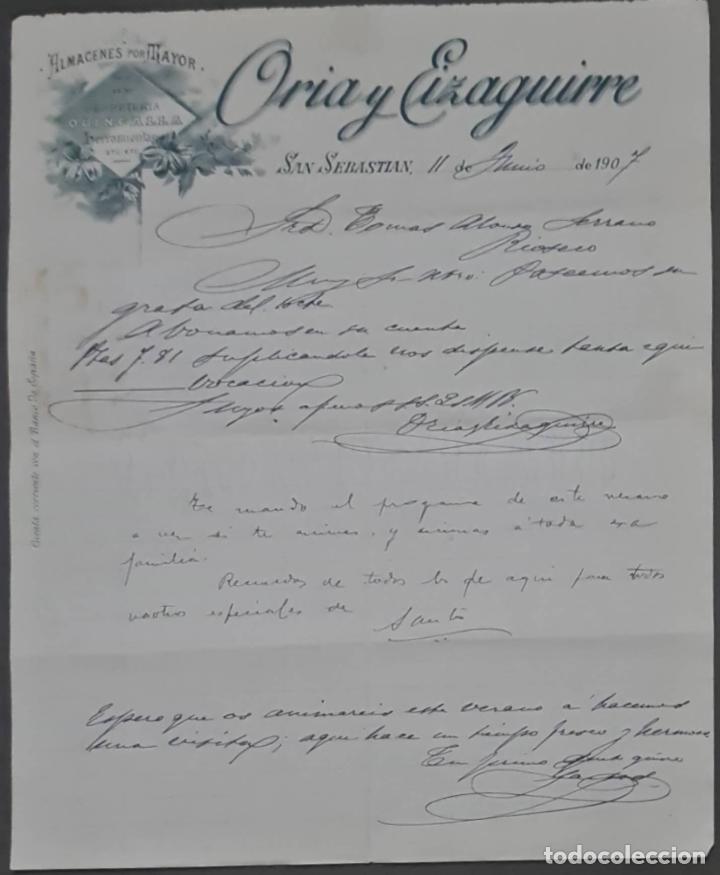 ALMACENES POR MAYOR
DE
FERRETERIA
QUINCALLA
Herramientas
ETC. ETC.
Oria y Eizaguirre
SAN SEBASTIAN, 11 de Junio de 1907
Srd. Tomas Alonso Serrano
Rioseco
Muy Sr. ntro: Poseemos su
grata del 10 cte
Abonamos en su cuenta
Ptas 7.81 suplicandole nos dispense tanta equi
vocacion
Suyos afmos S.S.
Oria y Eizaguirre
Te mando el programa de este verano
a ver si te animas, y animas á toda esa
familia.
Recuerdos de todos los de aqui para todos
vosotros especiales de
Santos
Espero que os animareis este verano á hacernos
una visita; aqui hace un tiempo fresco y hermoso
Tu primo que quiere
Cuenta corriente con el Banco De España
todocoleccion